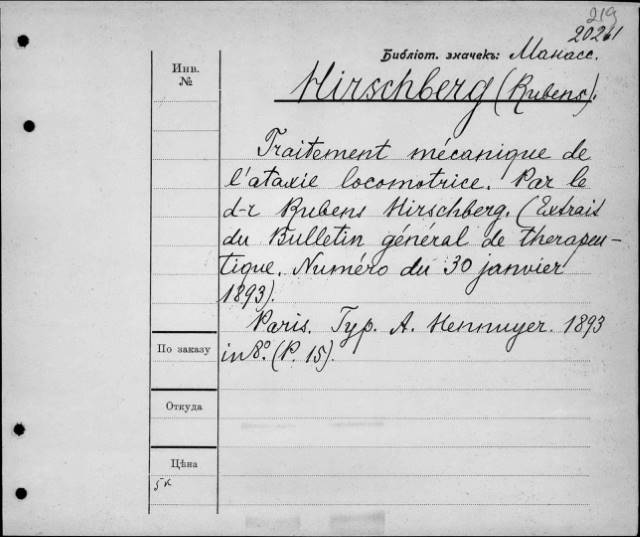 219
20261
Библіот. значекъ: Манасс.
Инв.
№
Hirschberg (Rubens).
Traitement mécanique de
l'ataxie locomotrice. Par le
d-r Rubens Hirschberg. (Extrait
du Bulletin général de therapeu-
tique. Numéro du 30 janvier
1893).
Paris. Typ. A. Hennuyer. 1893
in 8º. (P. 15).
По заказу
Откуда
Цѣна
5 к